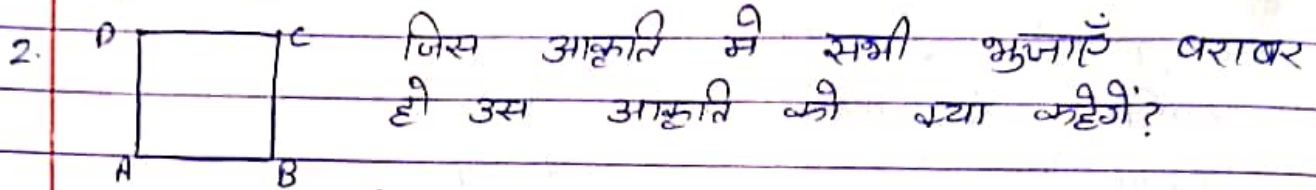 2. D C जिस आकृति मे सभी भुजाएँ बराबर
हो उस आकृति को क्या कहेगें?
A B